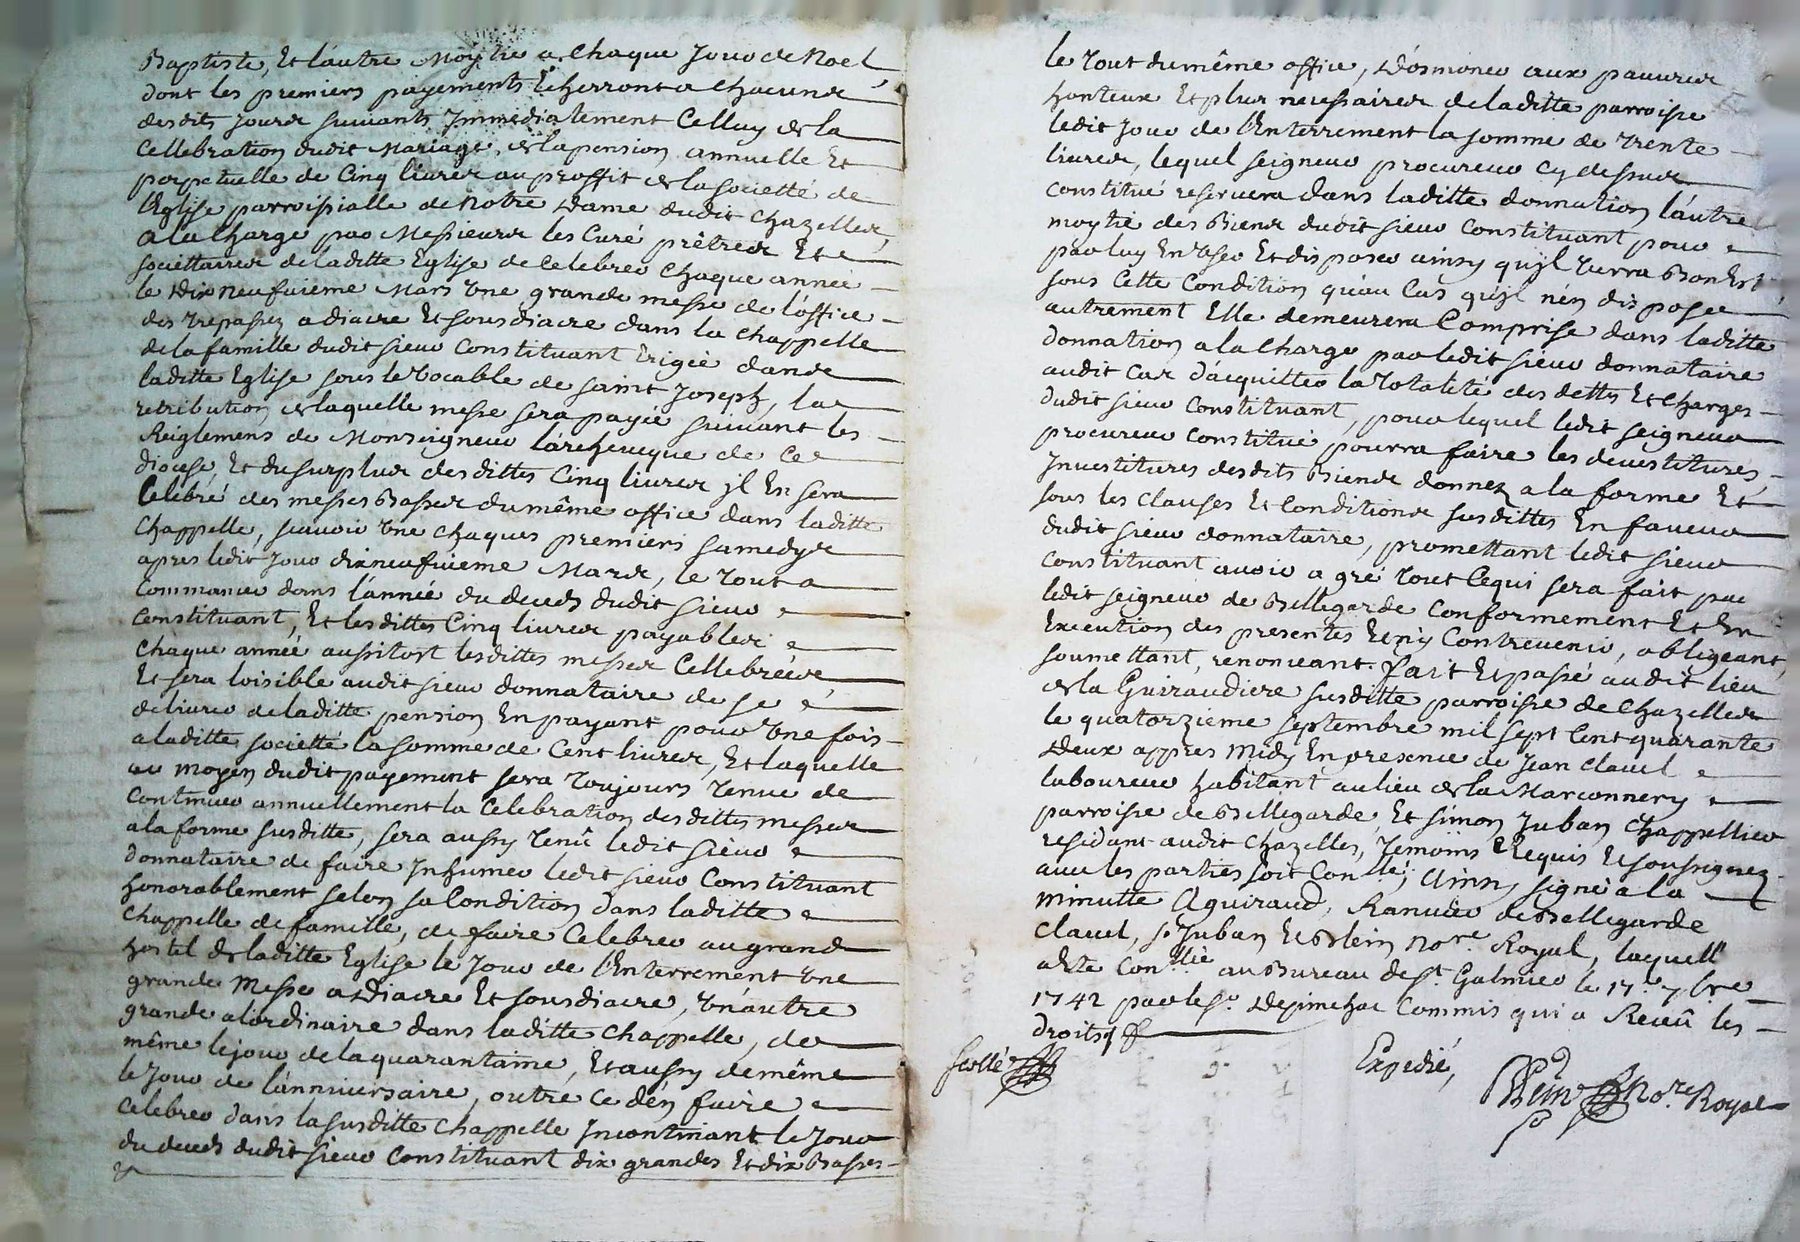 Baptiste, Et lautre Moytié a Chaque Jour de Noel,
dont les premiers payements Echerront a Chacun
desdits Jours suivants Immediatement Celluy de la
Cellebration dudit Mariage, de la pension annuelle Et
perpetuelle de Cinq livres au proffit de la societté de
l'Eglise parroissialle de Notre Dame dudit Chazelles,
a la Charge par Messieurs les Curé prêtres Et
societtaires de laditte Eglise de Celebrer Chaque année
le Dix neufvieme Mars Une grande messe de l'office
des trepassez a diacre Et sousdiacre dans la Chappelle
de la famille dudit sieur Constituant Erigée dans
laditte Eglise sous le Vocable de saint Joseph, la
retribution de laquelle messe sera payée suivant les
Reiglemens de Monseigneur l'archeveque de Ce
diocese, Et du surplus desdittes Cinq livres jl En sera
Celebré des messes Basses du même office dans laditte
Chappelle, scavoir Une chaques premiers samedys
apres ledit Jour dixneufvieme Mars, le tout a
Commancer dans l'année du deceds dudit sieur
Constituant, Et lesdittes Cinq livres payables
Chaque année aussitost lesdittes messes Cellebrées,
Et sera loisible audit sieur donnataire de se
delivrer de laditte pension En payant pour Une fois
a laditte societté la somme de Cent livres, Et laquelle
au moyen dudit payement sera toujours tenue de
Continuer annuellement la Celebration desdittes messes
a la forme susditte, sera aussy tenû ledit sieur
donnataire de faire Inhumer ledit sieur Constituant
honorablement selon sa Condition dans laditte
Chappelle de famille, de faire Celebrer au grand
hostel de laditte Eglise le Jour de l'Enterrement Une
grande Messe a Diacre Et sousdiacre, Un'autre
grande a lordinaire dans laditte Chappelle, de
même le jour de la quarantaine, Et aussy de même
le Jour de l'anniversaire, outre Ce d'en faire
Celebrer dans la susditte Chappelle Incontinant le Jour
du deceds dudit sieur Constituant dix grandes Et dix Basses
le tout du même office, D'osmoner aux pauvres
honteux Et plus necessaires de laditte parroisse
ledit Jour de l'Enterrement la somme de trente
livres, lequel seigneur procureur Cy dessus
Constitué reservera dans laditte donnation l'autre
moytié des Biens dudit sieur Constituant pour
par luy En User Et disposer ainsy qu'jl verra Bon Est,
sous Cette Condition qu'au Cas qu'jl n'en dispose
autrement Elle demeurera Comprise dans laditte
donnation a la Charge par ledit sieur donnataire
audit Cas d'acquitter la totalité des dettes Et Charges
dudit sieur Constituant, pour lequel ledit seigneur
procureur Constitué pourra faire les devestitures
Investitures desdits Biens donnez a la forme Et
sous les Clauses Et Conditions susdittes En faveur
dudit sieur donnataire, promettant ledit sieur
Constituant avoir a gré tout Cequi sera fait par
ledit seigneur de Bellegarde Conformement Et En
Execution des presentes Et n'y Contrevenir, obligeant,
soumettant, renonceant. fait Et passé audit lieu
de la Guiraudiere susditte parroisse de Chazelles
le quatorzieme septembre mil sept Cent quarante
Deux appres Midy En presence de Jean Clavel
laboureur habitant au lieu de la Marconnery
parroisse de Bellegarde, Et Simon Juban Chappellier
residant audit Chazelles, temoins Requis Et soussignez
avec les parties soit Con.llé; Ainsy signé a la
minutte Aguiraud, Ranvier de Bellegarde
Clavel, s. Juban Et Blein No.re Royal, laquelle
a Ete Con.llée au Bureau de S.t Galmier le 17.e 7bre
1742 par le S.r Depinchac Commis qui a Receû les
droits
scellé Expedié,
Blein No.re Royal